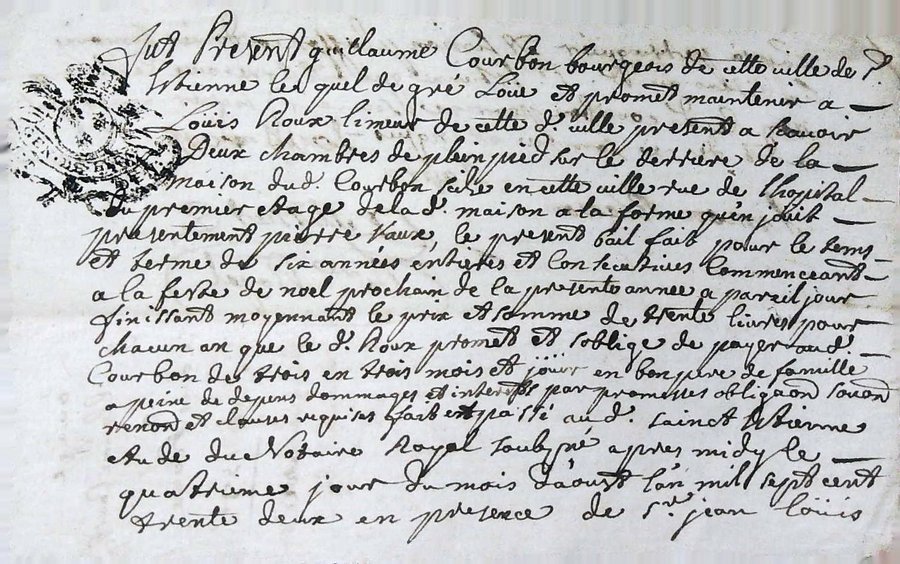 fut Present guillaume Courbon bourgeois de cette ville de St
Etienne lequel de gré Loue et promet maintenir a
Louis Roux limeur de cette d. ville present a scavoir
Deux chambres de plein pied sur le derriere de la
maison dud. Courbon size en cette ville rue de lhopital
du premier etage de la d. maison a la forme qu'en jouit
presentement pierre vaux, le present bail fait pour le tems
et terme de six années entieres et consecutives Commenceant
a la feste de noel prochain de la presente année a pareil jour
finissant moyennant le prix et somme de trente livres pour
chacun an que le d. Roux promet et soblige de payer aud.
Courbon de trois en trois mois et jouir en bon pere de famille
a peine de depens dommages et interests par promesses obligaon soumd
renond et clauses requises fait et passé aud. sainct Etienne
etude du Notaire Royal soubsne apres midy le
quatrieme jour du mois d'aoust l'an mil sept cent
trente deux en presence de Sr. jean Loüis